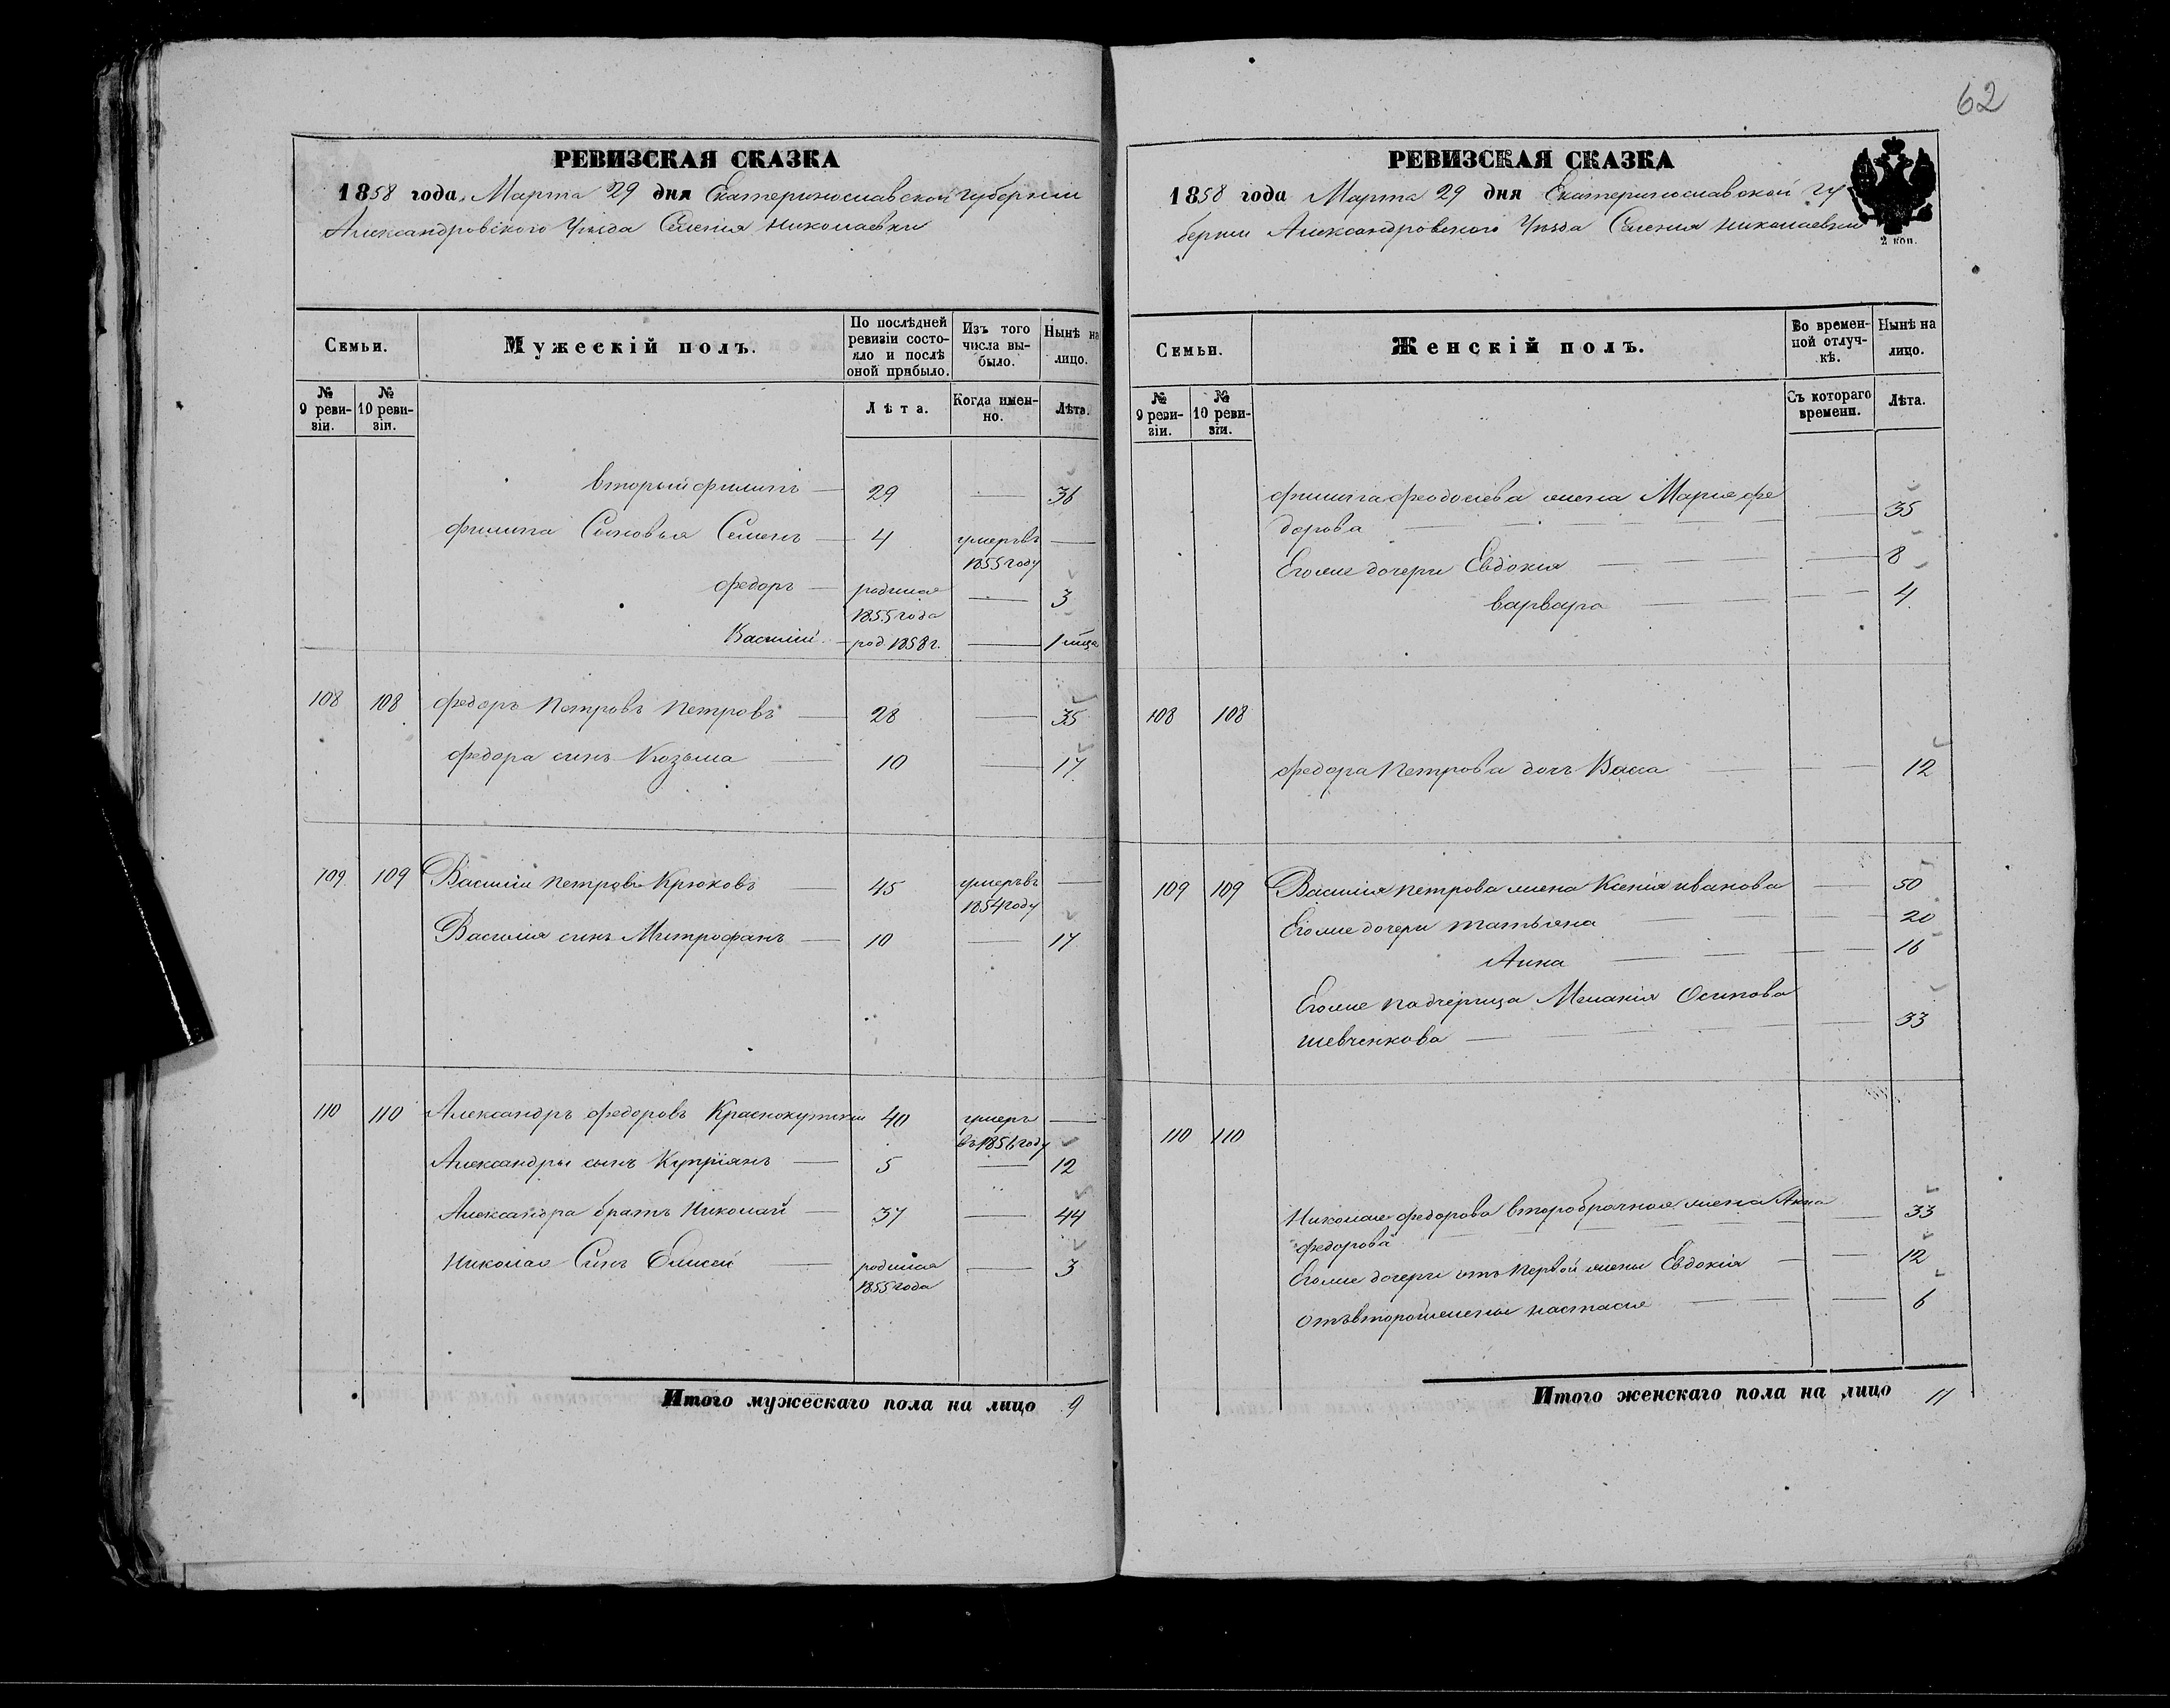 62
РЕВИЗСКАЯ СКАЗКА
1858 года Марта 29 дня Екатеринославской губерніи
Александровского Уѣзда Селенія Николаевки
Семьи.
Мужескій полъ.
По послѣдней ревизіи состояло и послѣ оной прибыло.
Изъ того числа выбыло.
Нынѣ на лицо.
№ 9 ревизіи.
№ 10 ревизіи.
Лѣта.
Когда именно.
Лѣта.
вторый Филипъ — 29 — 36
Филипа Сыновья Семенъ — 4 умеръ въ —
1855 году
Федоръ — родился — 3
1855 года
Василій — род. 1858 г. — 1 мѣца
108 108 Федоръ Петровъ Петровъ — 28 — 35
Федора синъ Козьма — 10 — 17
109 109 Василій Петровъ Крюковъ — 45 умеръ въ —
1854 году
Василія синъ Митрофанъ — 10 — 17
110 110 Александръ Федоровъ Краснокутский 40 умеръ —
въ 1856 году
Александры сынъ Купріянъ — 5 — 12
Александра братъ Николай — 37 — 44
Николая Синъ Елисей — родился — 3
1855 года
Итого мужескаго пола на лицо 9
РЕВИЗСКАЯ СКАЗКА
1858 года Марта 29 дня Екатеринославской гу
берніи Александровского Уѣзда Селенія Николаевки
2 коп.
Семьи.
Женскій полъ.
Во временной отлучкѣ.
Нынѣ на лицо.
№ 9 ревизіи.
№ 10 ревизіи.
Съ котораго времени.
Лѣта.
Филипа Феодосіева жена Мария Фе
дорова — — 35
Его же дочери Евдокія — — 8
Варвара — — 4
108 108
Федора Петрова дочь Васса — — 12
109 109 Василія Петрова жена Ксенія Иванова — 50
Его же дочери Татьяна — — 20
Анна — — 16
Его же Падчерица Меланія Осипова
Шевченкова — — 33
110 110
Николая Федорова второбрачная жена Анна
Федорова — 33
Его же дочери отъ Первой жены Евдокія — — 12
отъ второй жены Настасія — — 6
Итого женскаго пола на лицо 11